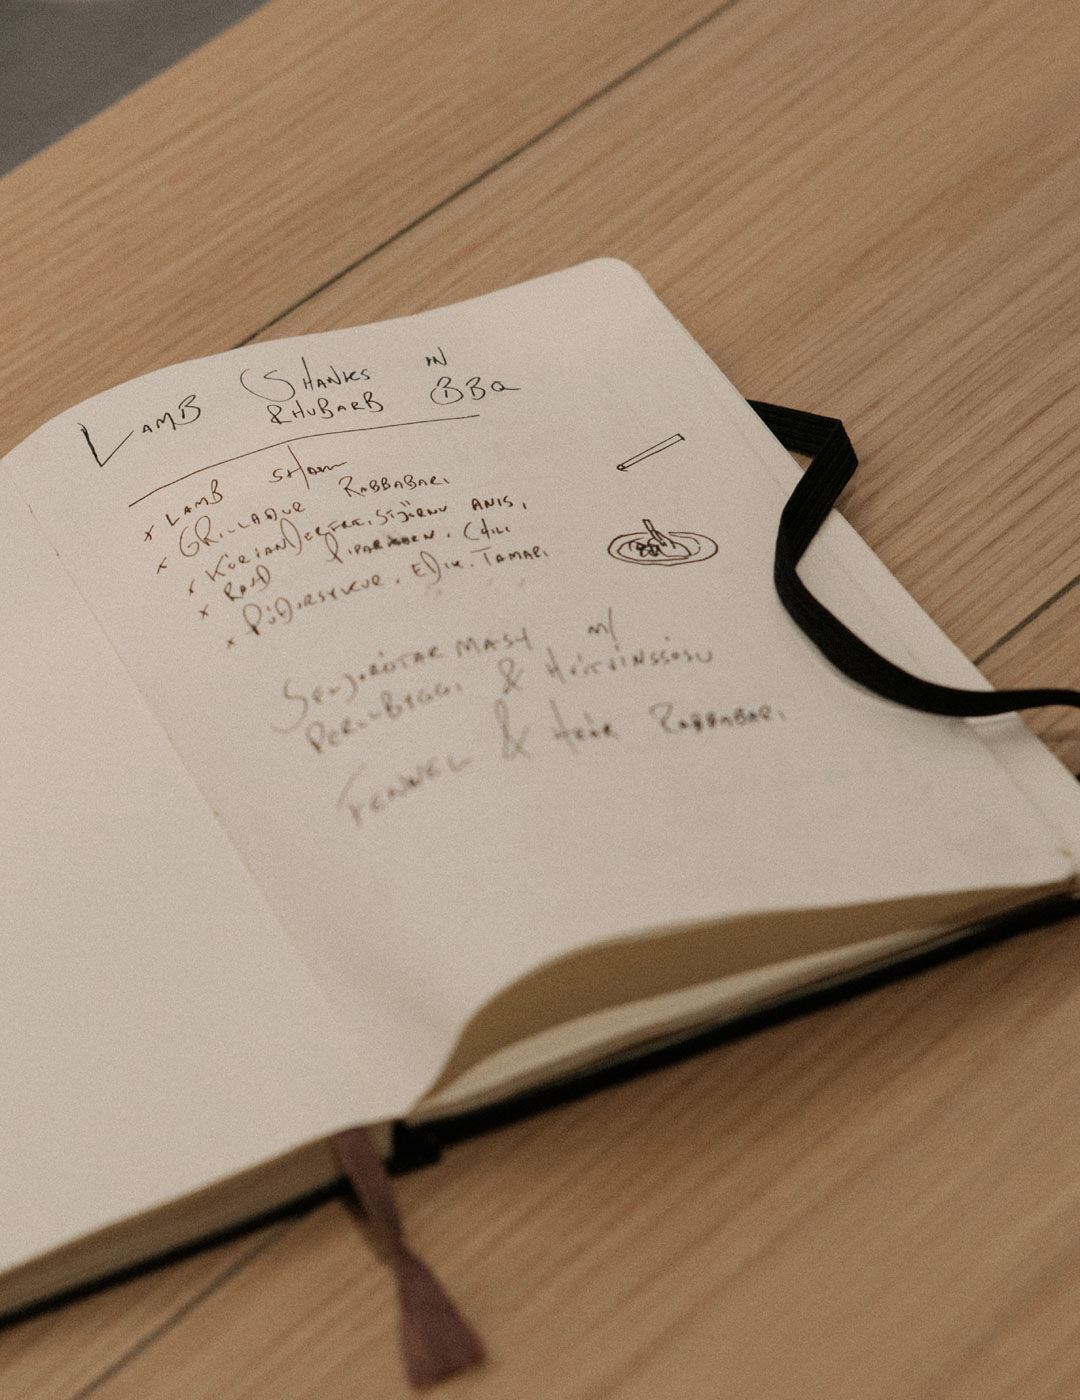 LAMB SHANKS IN
RHUBARB BBQ
× LAMB SHANK
× GRILLAÐUR RABBABARI
× KORIANDERFRÆ, STJÖRNU ANIS,
× RAUÐ PIPARKORN, CHILI
× PÚÐURSYKUR, EDIK, TAMARI
SELJURÓTAR MASH M/
PERLUBYGGI & HVÍTVÍNSSÓSU
FENNEL & HRÁR RABBABARI